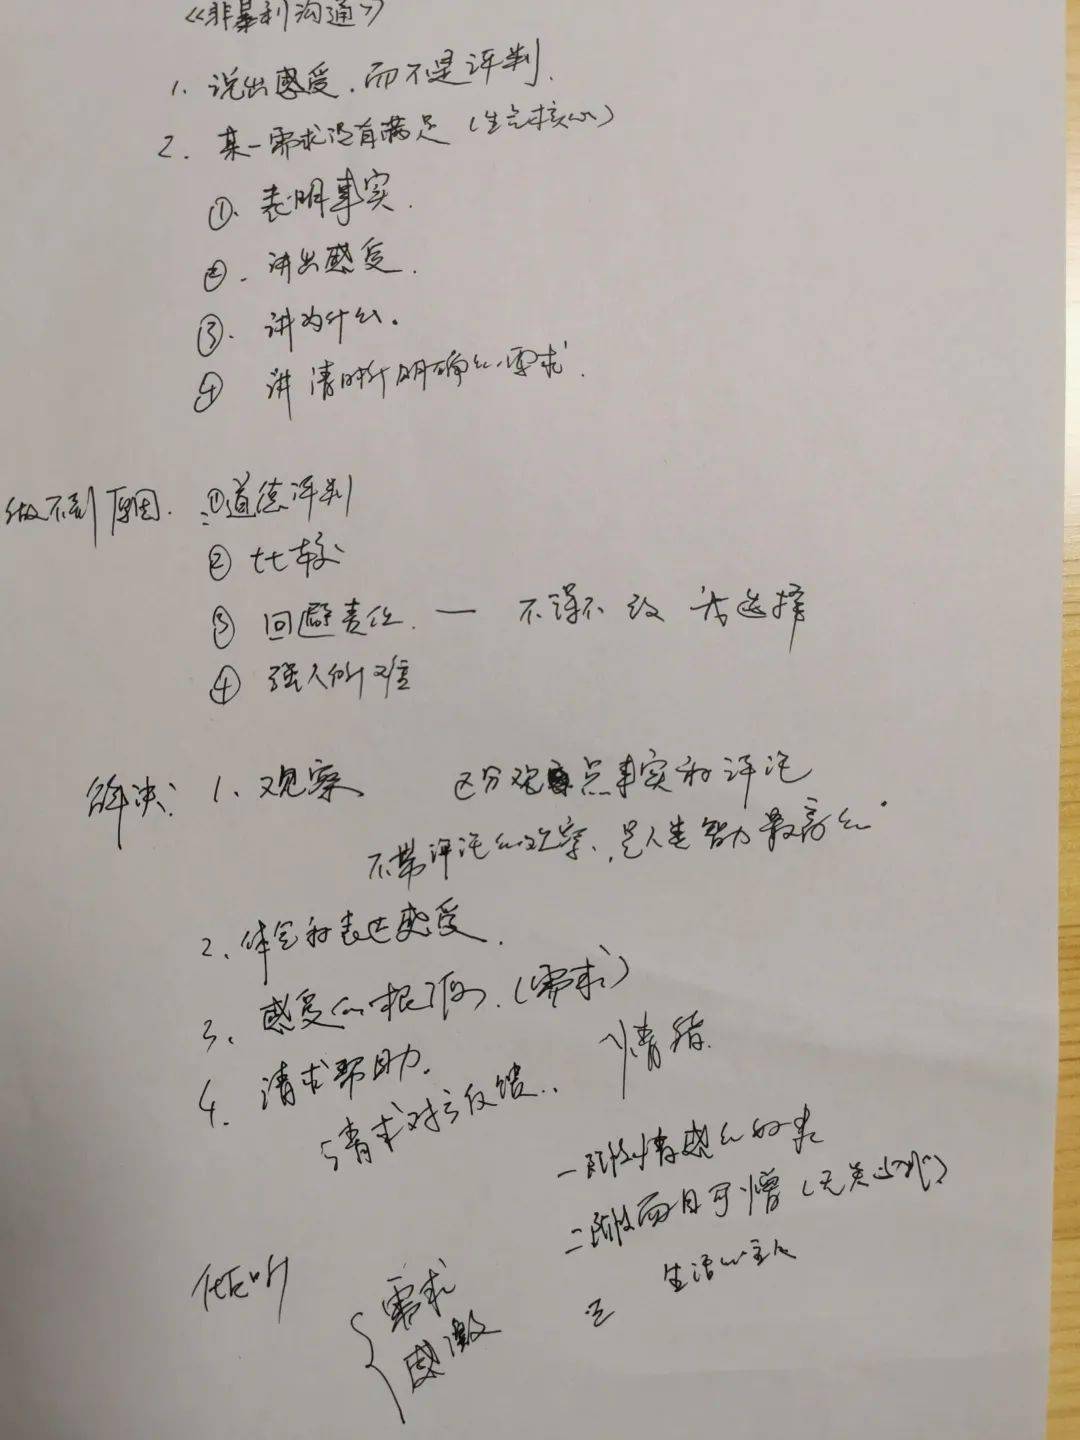 《非暴利沟通》
1. 说出感受，而不是评判.
2. 某一需求没有满足（生气核心）
①. 表明事实.
②. 讲出感受.
③. 讲为什么.
④ 讲清时 明确的要求.
做不到原因. ①道德评判
② 比较
③ 回避责任. — 不得不 改 我选择
④ 强人所难
解决: 1、观察 区分观点事实和评论
不带评论的观察、是人类智力最高的.
2、体会和表达感受.
3、感受的根源.（需求）
4. 请求帮助.
请求对方反馈.. 情绪.
一阶段情感的奴隶
二阶段面目可憎（无关 ）
三 生活的主人
倾听 { 需求
感激